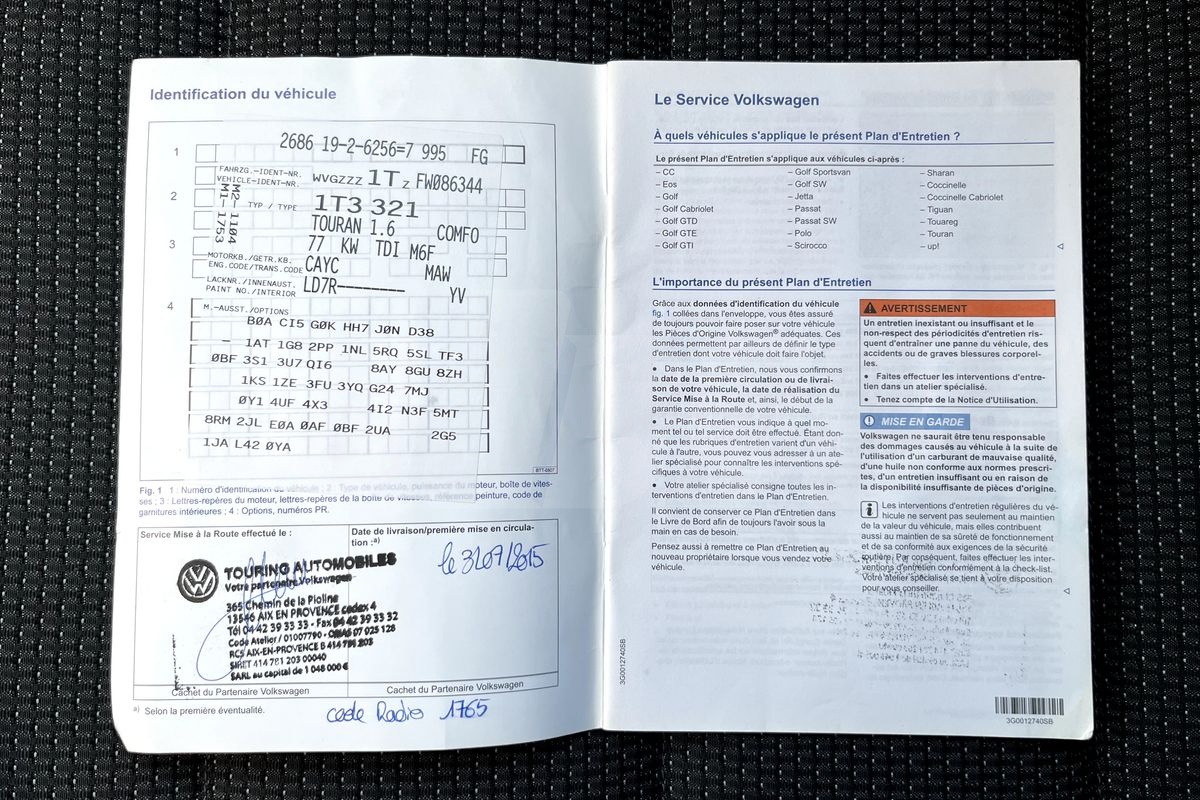 Identification du véhicule
1
2686 19-2-6256=7 995 FG
FAHRZG.-IDENT-NR.
VEHICLE-IDENT-NR.
WVGZZZ 1T Z FW086344
2
M2- 1104
M1- 1753
TYP / TYPE
1T3 321
TOURAN 1.6 COMFO
3
77 KW TDI M6F
MOTORKB./GETR.KB.
ENG.CODE/TRANS.CODE
CAYC MAW
LACKNR./INNENAUST.
PAINT NO./INTERIOR
LD7R YV
4
M.-AUSST./OPTIONS
B0A CI5 G0K HH7 J0N D38
– 1AT 1G8 2PP 1NL 5RQ 5SL TF3
0BF 3S1 3U7 QI6 8AY 8GU 8ZH
1KS 1ZE 3FU 3YQ G24 7MJ
0Y1 4UF 4X3 4I2 N3F 5MT
8RM 2JL E0A 0AF 0BF 2UA 2G5
1JA L42 0YA
BTT-0507
Fig. 1 1 : Numéro d'identification du véhicule ; 2 : Type de véhicule, puissance du moteur, boîte de vites-
ses ; 3 : Lettres-repères du moteur, lettres-repères de la boîte de vitesses, référence peinture, code de
garnitures intérieures ; 4 : Options, numéros PR.
Service Mise à la Route effectué le :
Date de livraison/première mise en circula-
tion :a)
le 3107/2015
TOURING AUTOMOBILES
Votre partenaire Volkswagen
365 Chemin de la Pioline
13546 AIX EN PROVENCE cedex 4
Tél 04 42 39 33 33 - Fax 04 42 39 33 32
Code Atelier / 01007790 - ORIAS 07 025 128
RCS AIX-EN-PROVENCE B 414 781 203
SIRET 414 781 203 00040
SARL au capital de 1 048 000 €
Cachet du Partenaire Volkswagen
Cachet du Partenaire Volkswagen
a) Selon la première éventualité.
code Radio 1765
Le Service Volkswagen
À quels véhicules s'applique le présent Plan d'Entretien ?
Le présent Plan d'Entretien s'applique aux véhicules ci-après :
– CC
– Eos
– Golf
– Golf Cabriolet
– Golf GTD
– Golf GTE
– Golf GTI
– Golf Sportsvan
– Golf SW
– Jetta
– Passat
– Passat SW
– Polo
– Scirocco
– Sharan
– Coccinelle
– Coccinelle Cabriolet
– Tiguan
– Touareg
– Touran
– up!
L'importance du présent Plan d'Entretien
Grâce aux données d'identification du véhicule
fig. 1 collées dans l'enveloppe, vous êtes assuré
de toujours pouvoir faire poser sur votre véhicule
les Pièces d'Origine Volkswagen® adéquates. Ces
données permettent par ailleurs de définir le type
d'entretien dont votre véhicule doit faire l'objet.
● Dans le Plan d'Entretien, nous vous confirmons
la date de la première circulation ou de livrai-
son de votre véhicule, la date de réalisation du
Service Mise à la Route et, ainsi, le début de la
garantie conventionnelle de votre véhicule.
● Le Plan d'Entretien vous indique à quel mo-
ment tel ou tel service doit être effectué. Étant don-
né que les rubriques d'entretien varient d'un véhi-
cule à l'autre, vous pouvez vous adresser à un ate-
lier spécialisé pour connaître les interventions spé-
cifiques à votre véhicule.
● Votre atelier spécialisé consigne toutes les in-
terventions d'entretien dans le Plan d'Entretien.
Il convient de conserver ce Plan d'Entretien dans
le Livre de Bord afin de toujours l'avoir sous la
main en cas de besoin.
Pensez aussi à remettre ce Plan d'Entretien au
nouveau propriétaire lorsque vous vendez votre
véhicule.
AVERTISSEMENT
Un entretien inexistant ou insuffisant et le
non-respect des périodicités d'entretien ris-
quent d'entraîner une panne du véhicule, des
accidents ou de graves blessures corporel-
les.
● Faites effectuer les interventions d'entre-
tien dans un atelier spécialisé.
● Tenez compte de la Notice d'Utilisation.
MISE EN GARDE
Volkswagen ne saurait être tenu responsable
des dommages causés au véhicule à la suite de
l'utilisation d'un carburant de mauvaise qualité,
d'une huile non conforme aux normes prescri-
tes, d'un entretien insuffisant ou en raison de
la disponibilité insuffisante de pièces d'origine.
Les interventions d'entretien régulières du vé-
hicule ne servent pas seulement au maintien
de la valeur du véhicule, mais elles contribuent
aussi au maintien de sa sûreté de fonctionnement
et de sa conformité aux exigences de la sécurité
routière. Par conséquent, faites effectuer les inter-
ventions d'entretien conformément à la check-list.
Votre atelier spécialisé se tient à votre disposition
pour vous conseiller.
3G0012740SB
3G0012740SB